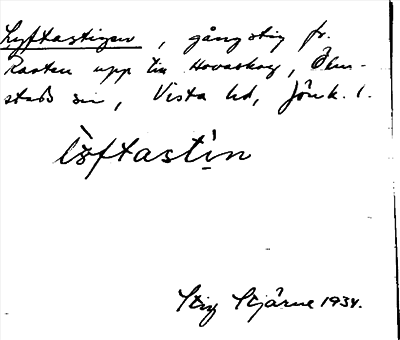 Lyftastigen, gångstig fr.
Rasten upp till Hovaskog, Ölm-
stads sn, Vista hd, Jönk. l.
löftastin
Stig Stjärne 1934.